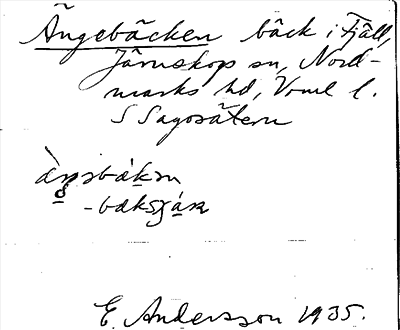 Ängebäcken bäck i Fjäll,
Järnskog sn, Nord-
marks hd, Vrml l.
S Sagosätern
E. Andersson 1935.